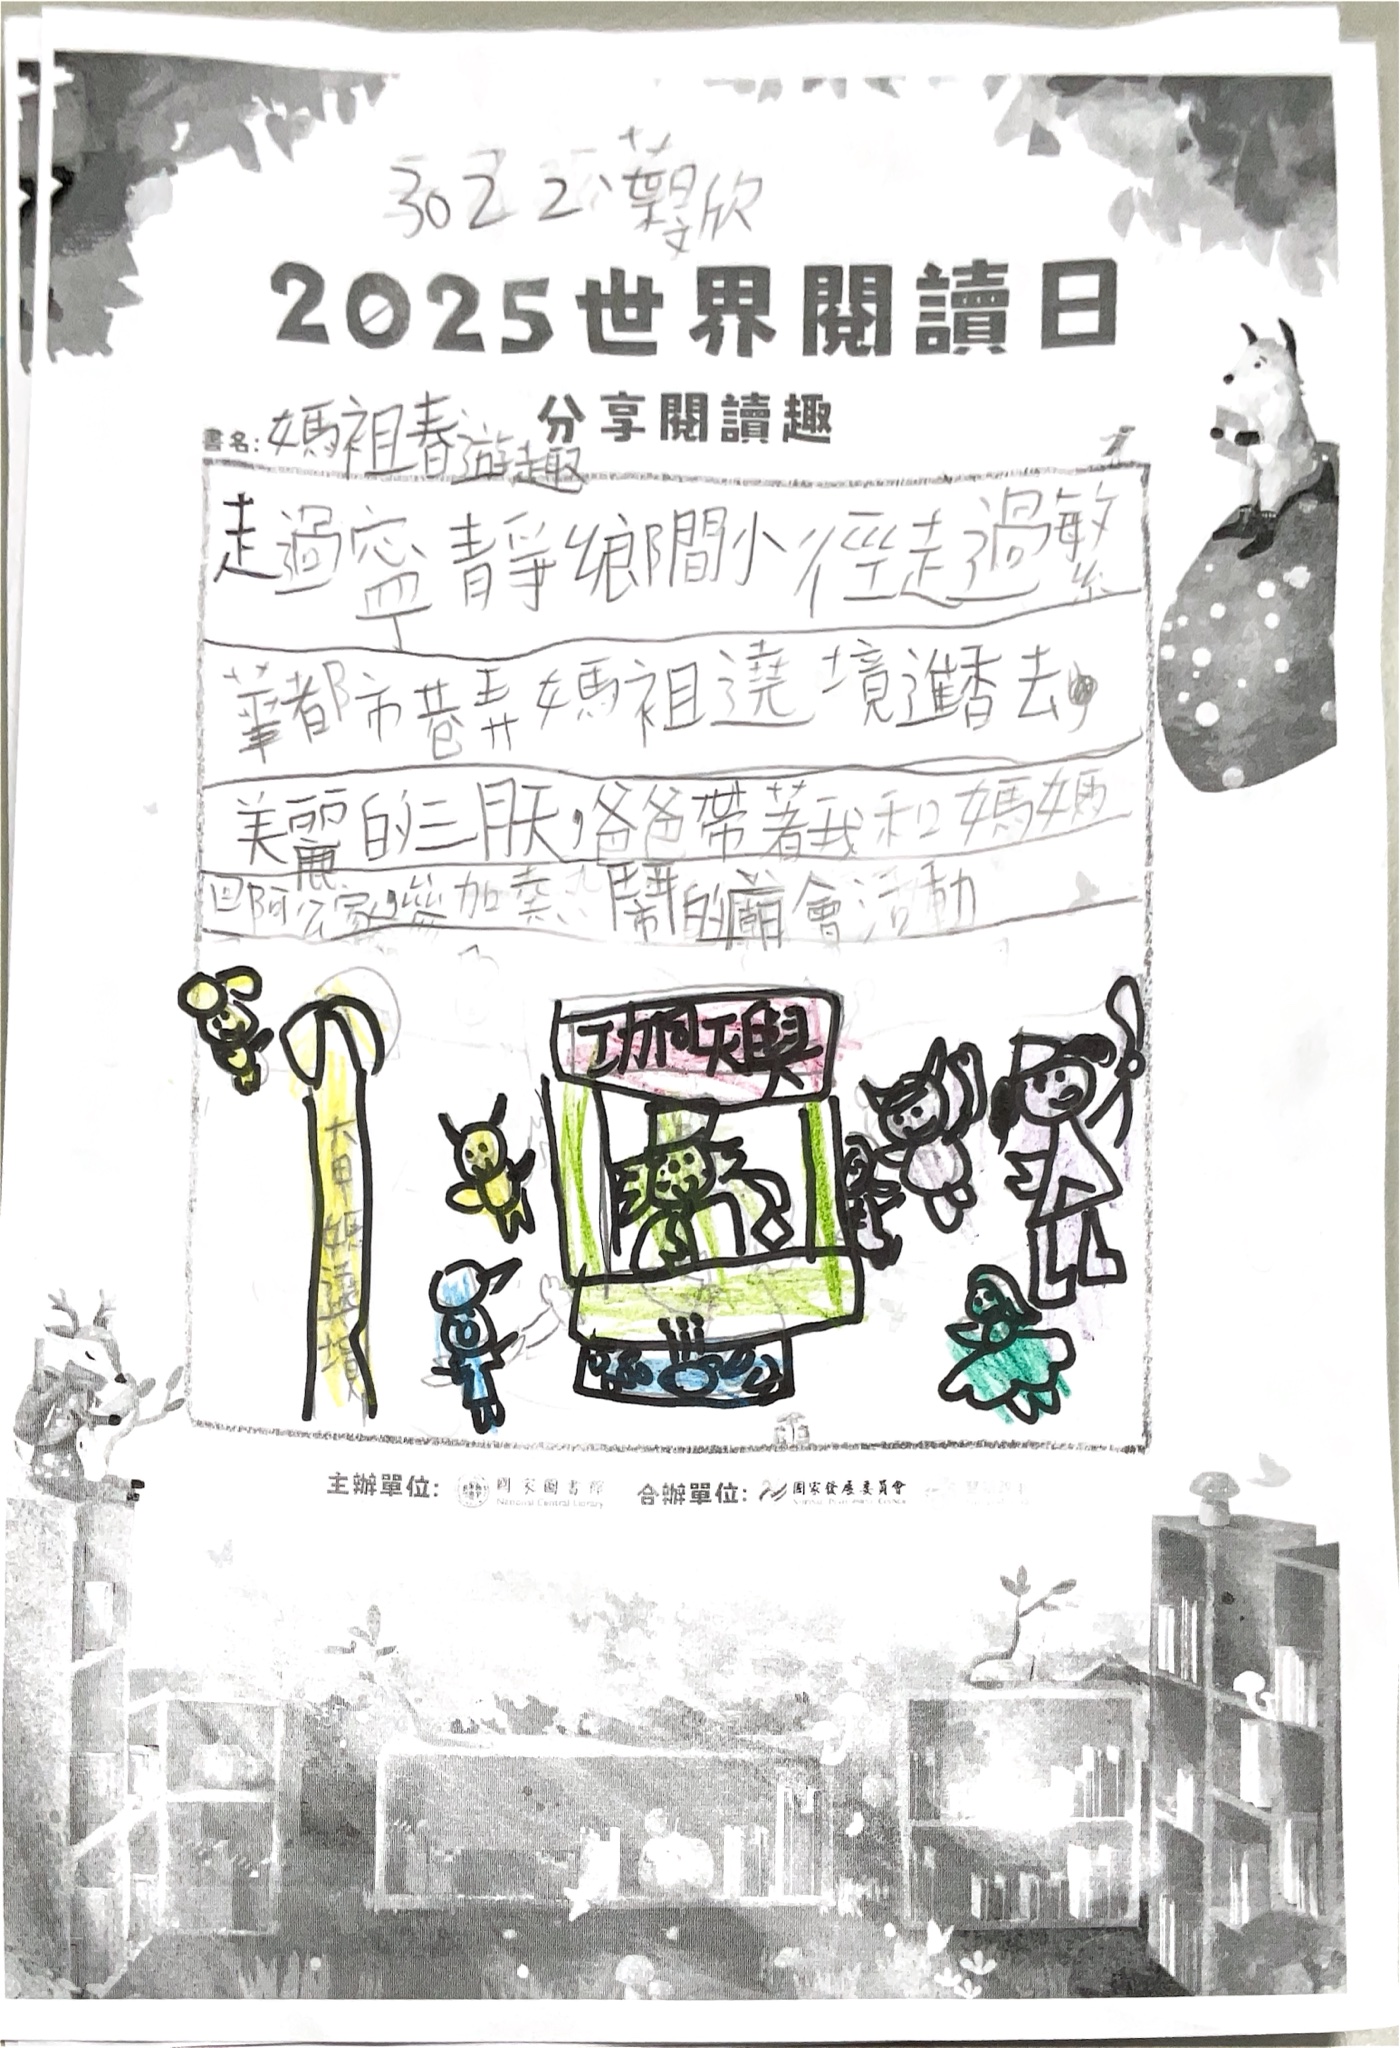 302 2
2025世界閱讀日
分享閱讀趣
書名:媽祖春遊趣
走過寧靜鄉間小徑走過繁
華都市巷弄媽祖遶境進香去
美麗的三月天,爸爸帶著我和媽媽
回阿公家參加熱鬧的廟會活動
大甲媽遶境
主辦單位: 國家圖書館 合辦單位: 國家發展委員會
National Central Library